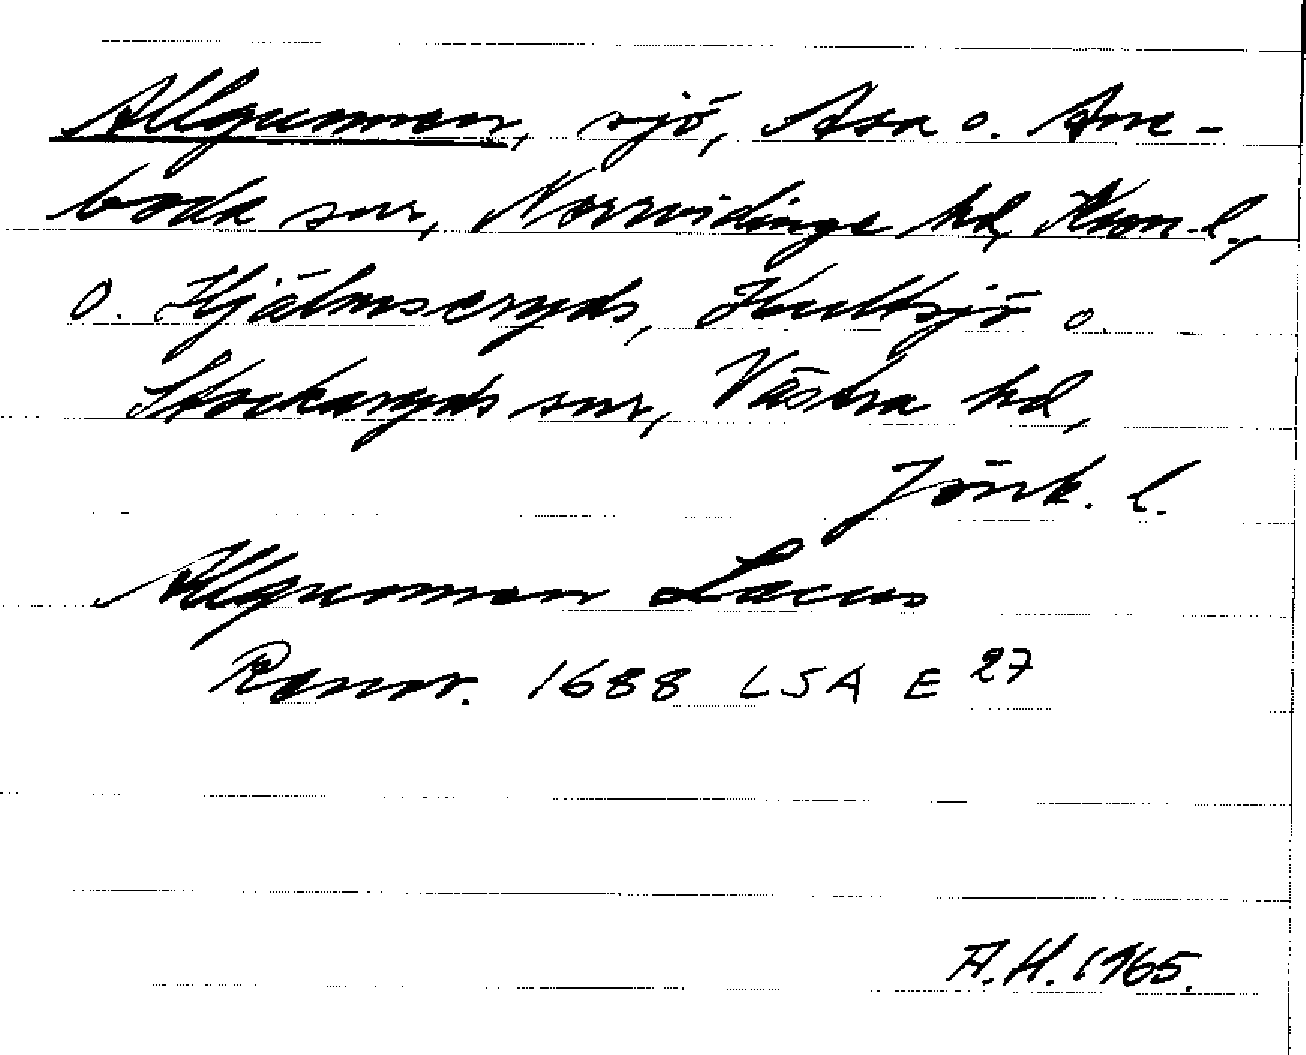 Allgunnen, sjö, Asa o. Ane-
boda snr, Norrvidinge hd, Kron. l.,
o. Hjälmseryds, Hultsjö o.
Stockaryds snr, Västra hd,
Jönk. l.
Allgunnen Lacus
Ranor. 1688 LSA E 27
A.H. 1965.